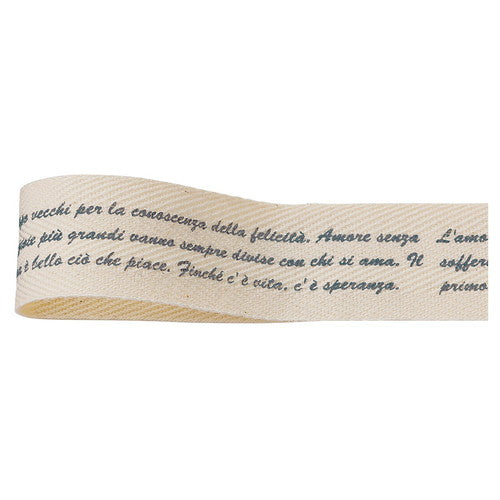 vecchi per la conoscenza della felicità. Amore senza
più grandi vanno sempre divise con chi si ama. Il
è bello ciò che piace. Finché c'è vita, c'è speranza.
L'amo
soffer
primo